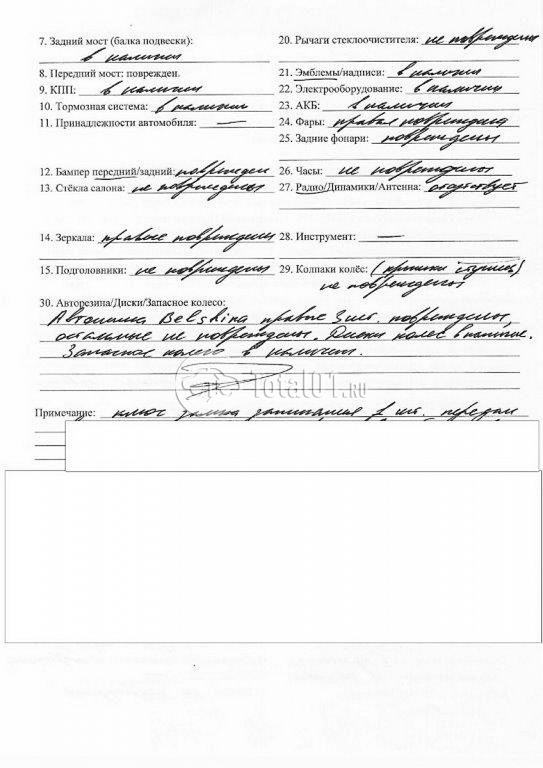 7. Задний мост (балка подвески):
в наличии
8. Передний мост: поврежден.
9. КПП: в наличии
10. Тормозная система: в наличии
11. Принадлежности автомобиля: —
12. Бампер передний/задний: поврежден
13. Стёкла салона: не повреждены
14. Зеркала: правые повреждены
15. Подголовники: не повреждены
20. Рычаги стеклоочистителя: не повреждены
21. Эмблемы/надписи: в наличии
22. Электрооборудование: в наличии
23. АКБ: в наличии
24. Фары: правая повреждена
25. Задние фонари: повреждены
26. Часы: не повреждены
27. Радио/Динамики/Антенна: отсутствует
28. Инструмент: —
29. Колпаки колёс: (крышки ступиц)
не повреждены
30. Авторезина/Диски/Запасное колесо:
Автошина Belshina правые 3 шт. повреждены,
остальные не повреждены. Диски колес в наличие.
Запасное колесо в наличии.
Total01.RU
Примечание: ключ замка зажигания 1 шт. передан